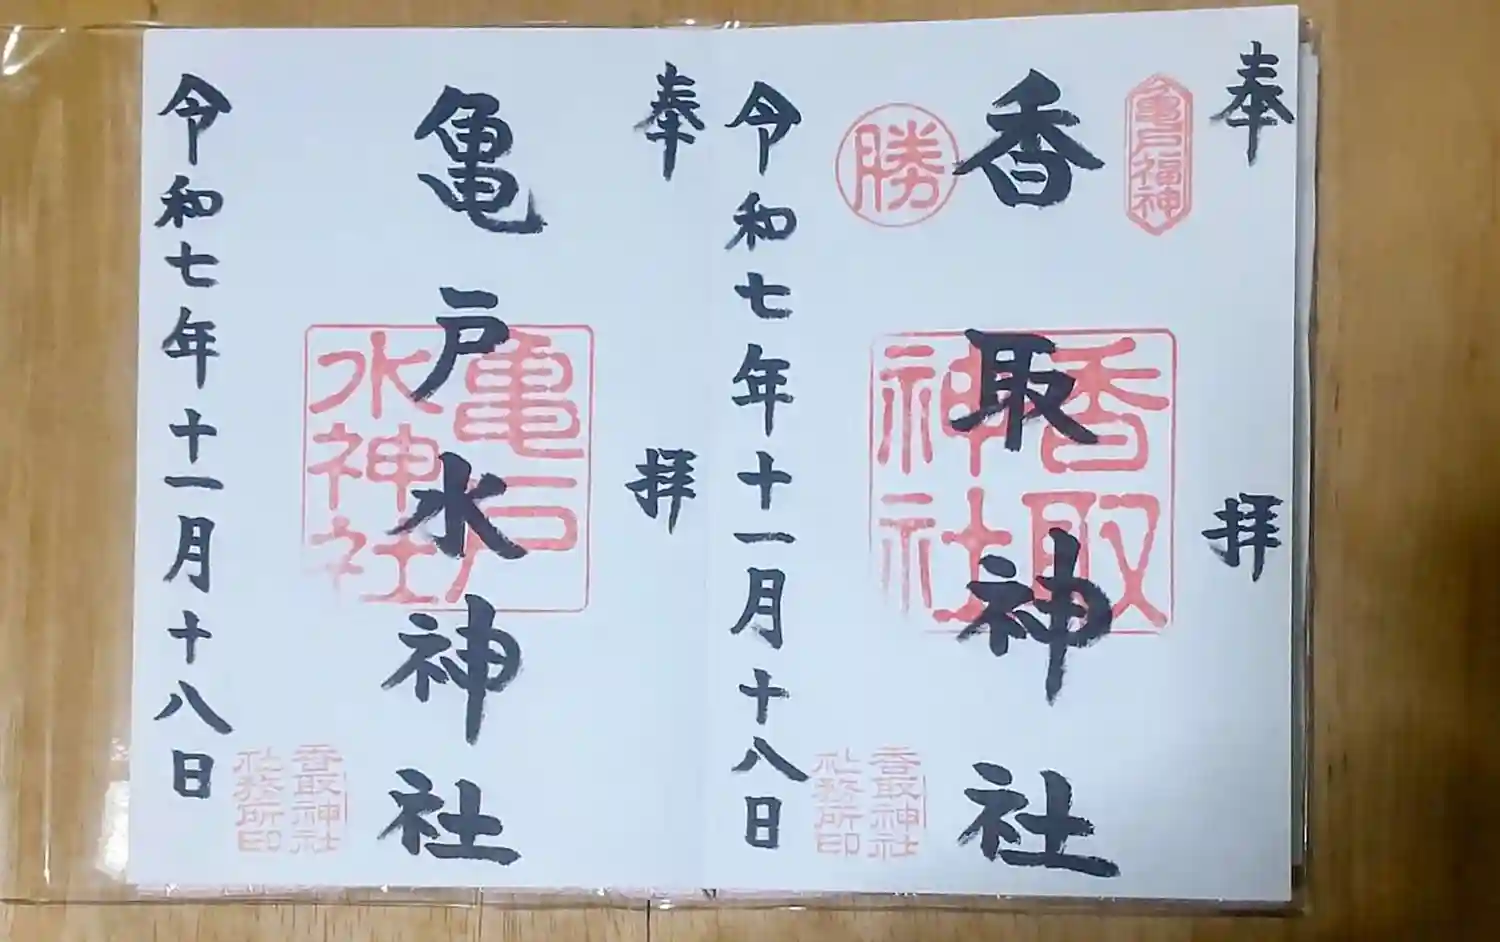 奉拝
亀戸福神
香取神社
勝
香取神社
香取神社
社務所印
令和七年十一月十八日
奉拝
亀戸水神社
亀戸
水神社
香取神社
社務所印
令和七年十一月十八日